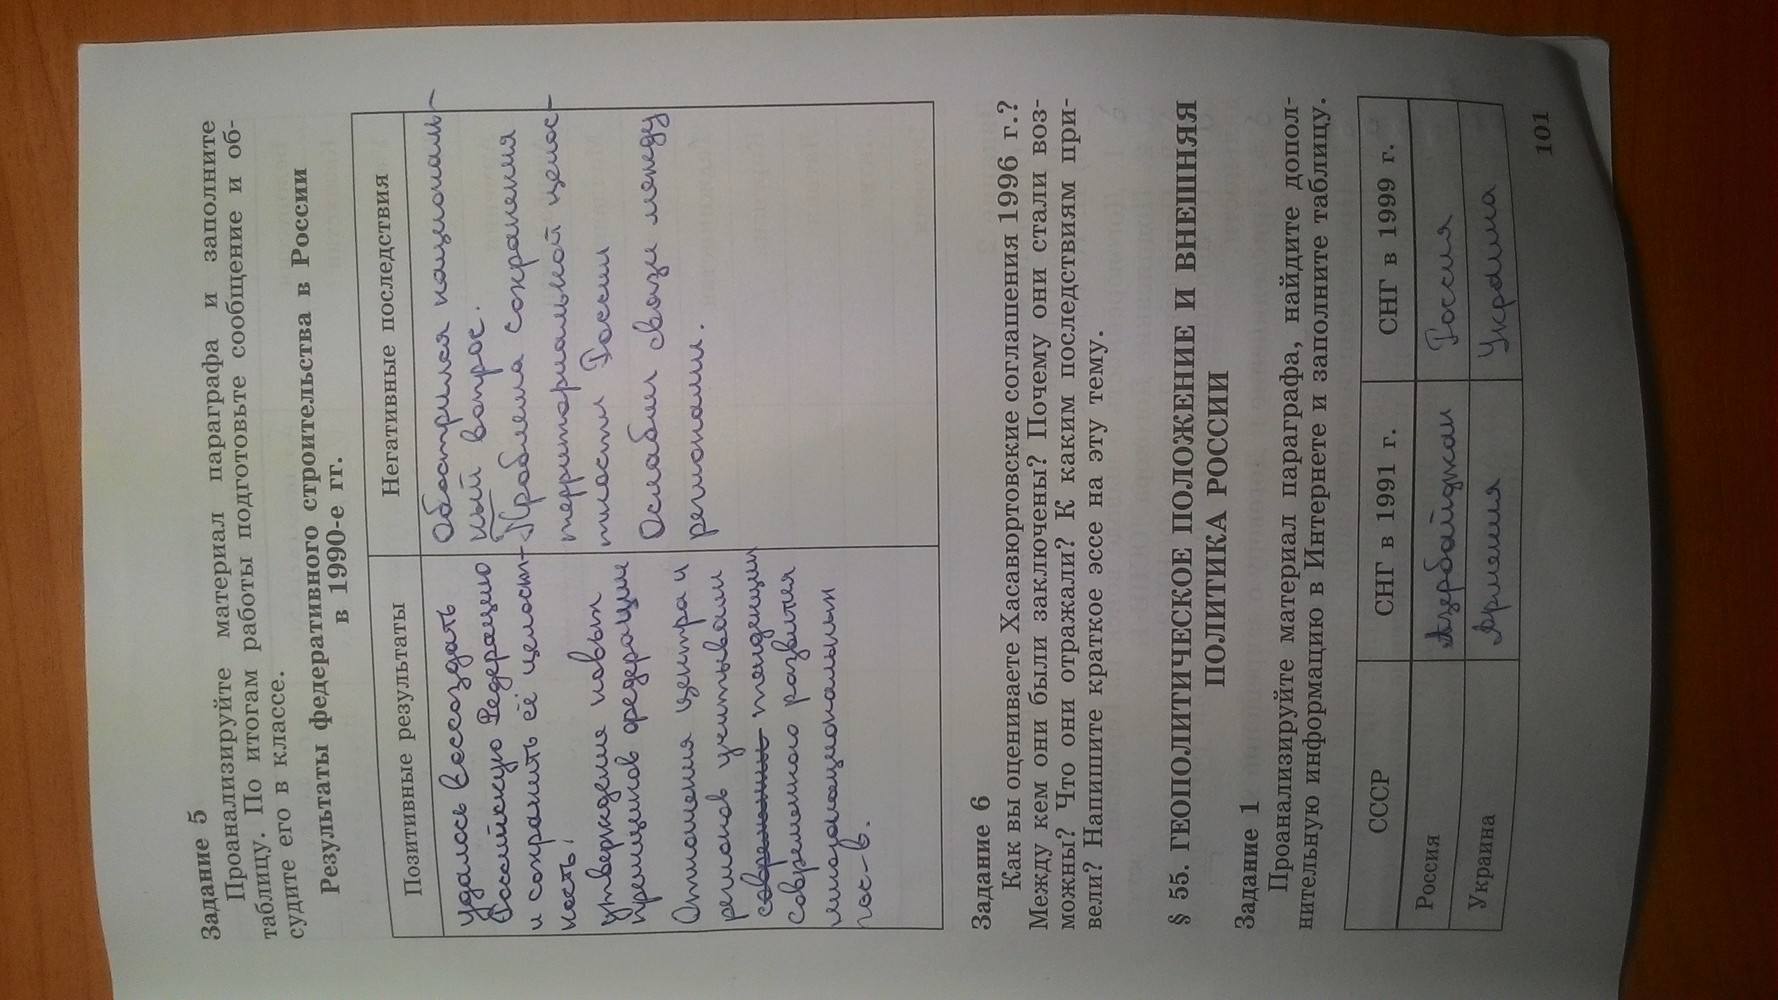 Задание 5
Проанализируйте материал параграфа и заполните
таблицу. По итогам работы подготовьте сообщение и об-
судите его в классе.
Результаты федеративного строительства в России
в 1990-е гг.
Позитивные результаты
удалось воссоздать
Российскую Федерацию
и сохранить её целост-
ность.
утверждение новых
принципов федерации
Отношения центра и
регионов учитывали
современны тенденции
современного развития
многонациональных
гос-в.
Негативные последствия
Обострился националь-
ный вопрос.
Проблема сохранения
территориальной целос-
тности России
Ослабли связи между
регионами.
Задание 6
Как вы оцениваете Хасавюртовские соглашения 1996 г.?
Между кем они были заключены? Почему они стали воз-
можны? Что они отражали? К каким последствиям при-
вели? Напишите краткое эссе на эту тему.
§ 55. ГЕОПОЛИТИЧЕСКОЕ ПОЛОЖЕНИЕ И ВНЕШНЯЯ
ПОЛИТИКА РОССИИ
Задание 1
Проанализируйте материал параграфа, найдите допол-
нительную информацию в Интернете и заполните таблицу.
СССР СНГ в 1991 г. СНГ в 1999 г.
Россия Азербайджан Россия
Украина Армения Украина
101